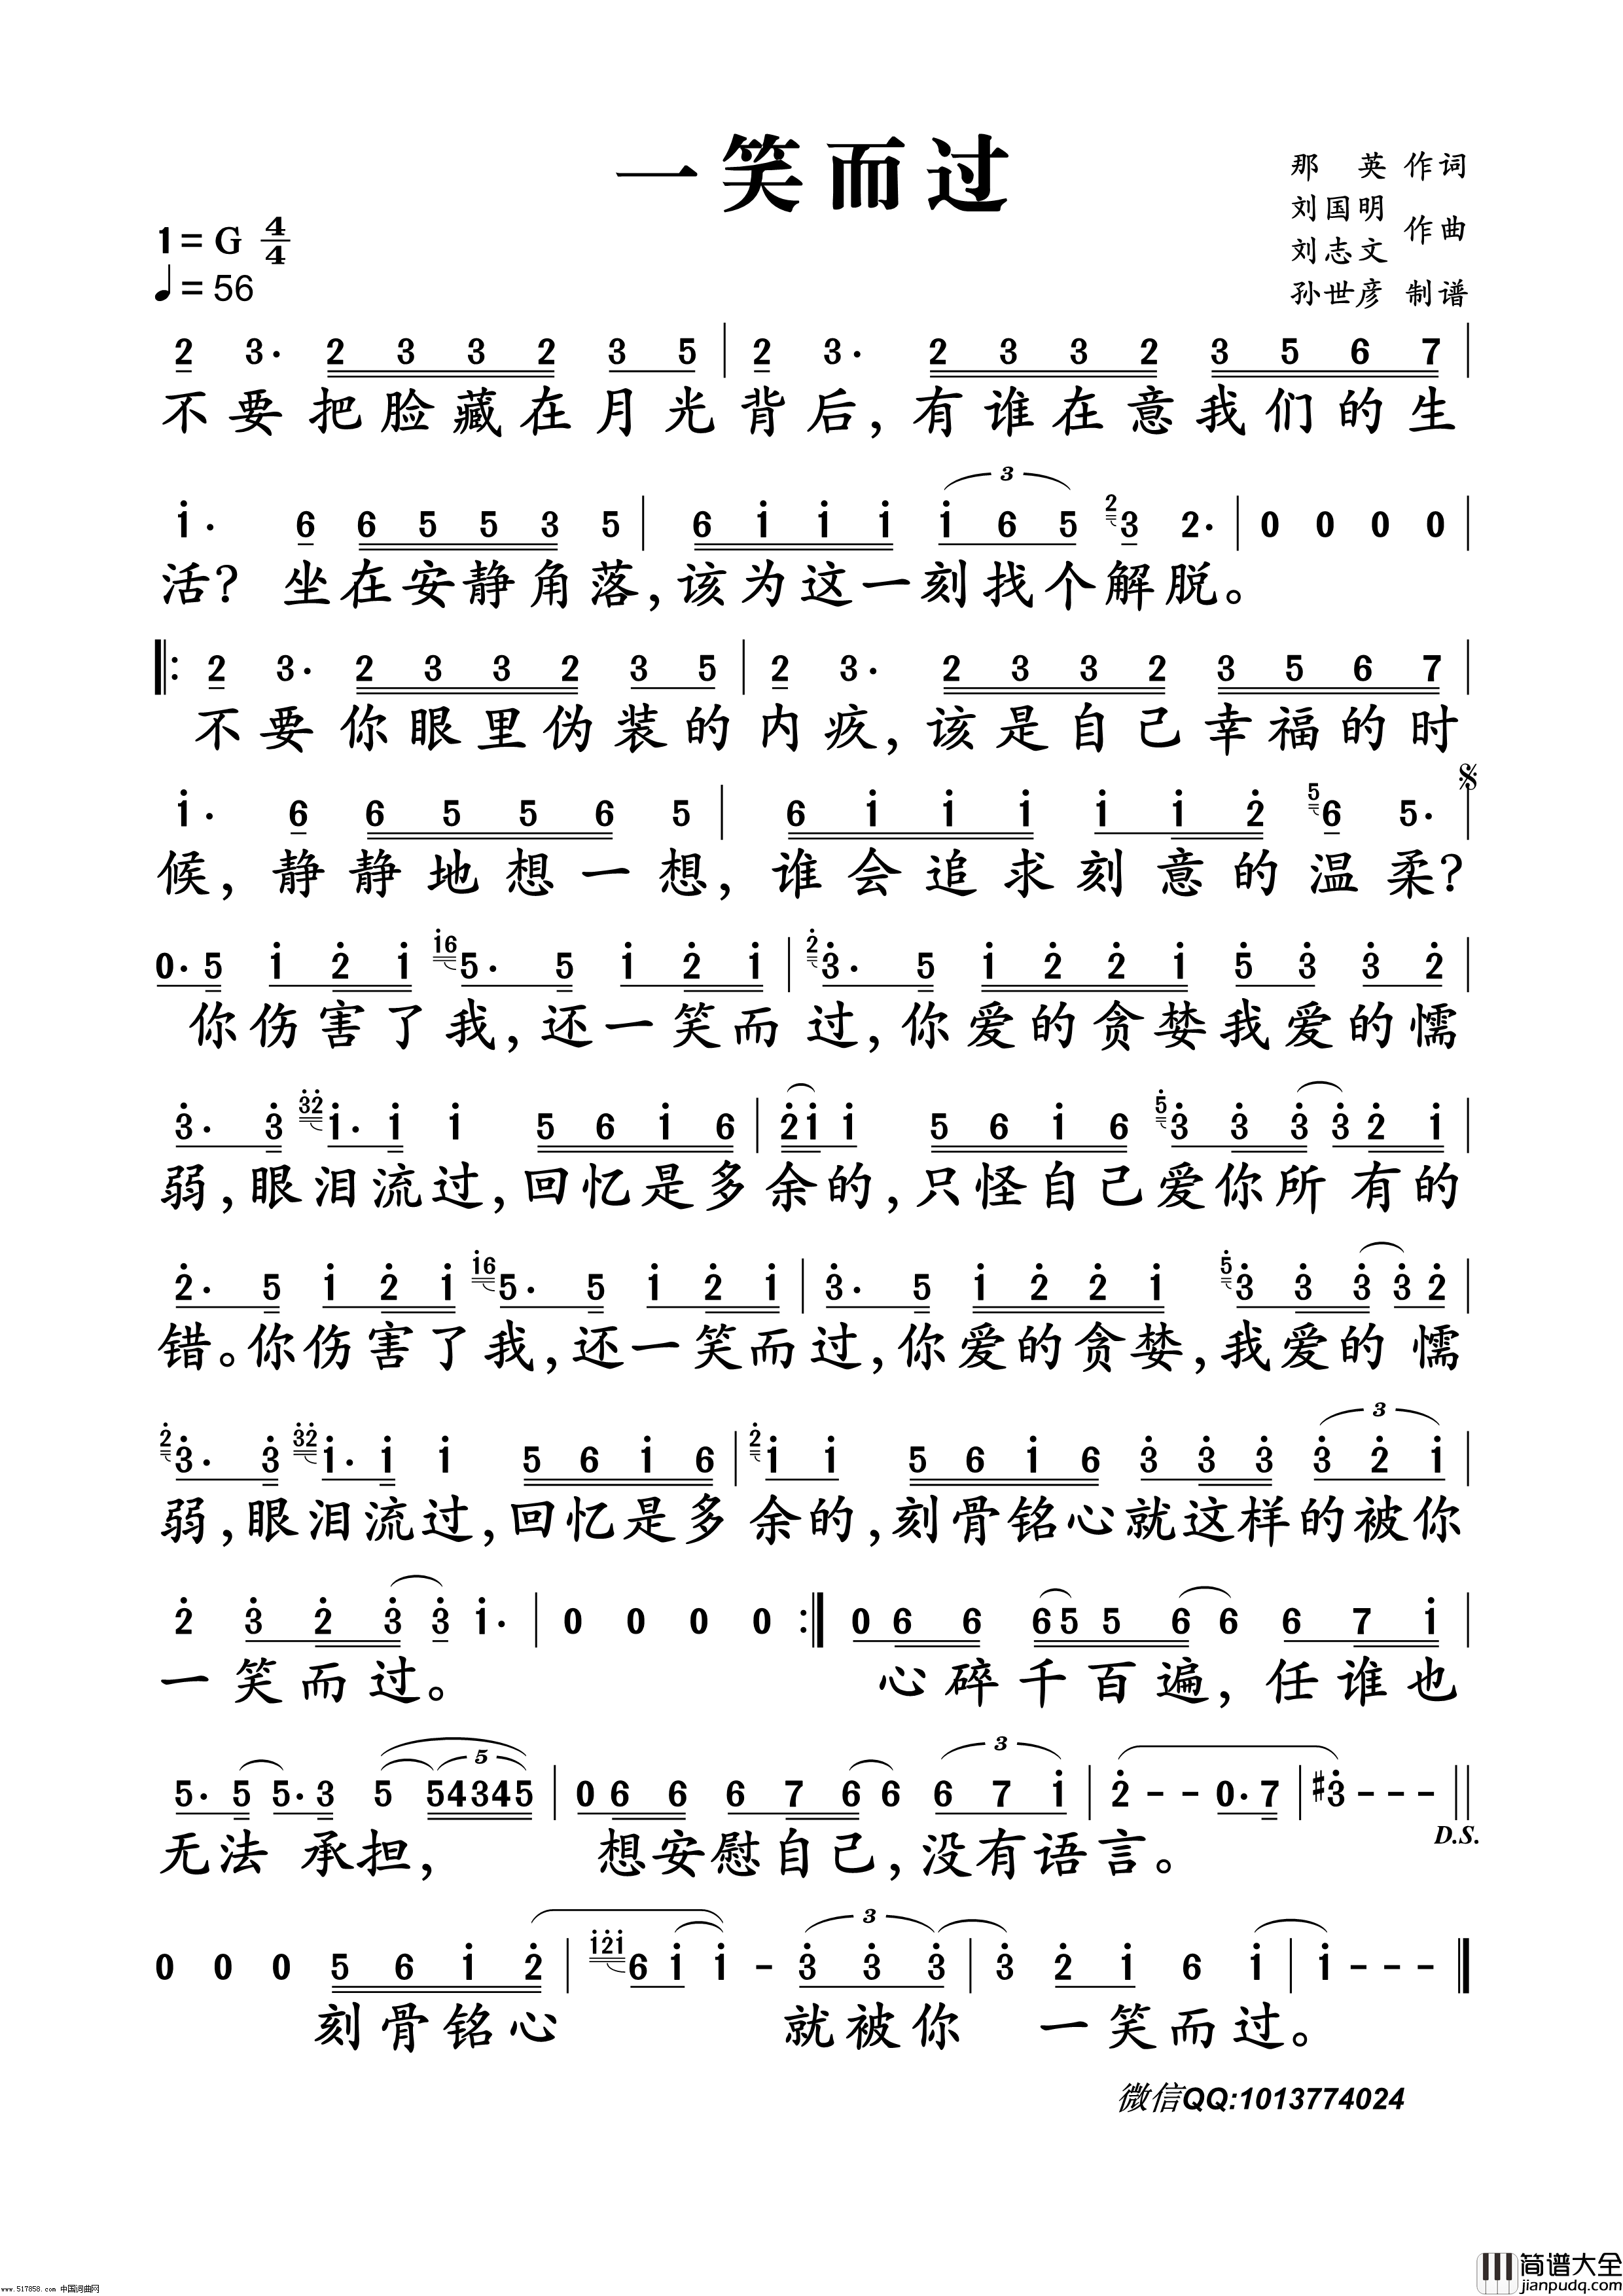 一笑而过
那 英 作词
刘国明
刘志文 作曲
孙世彦 制谱
1 = G 4/4
♩ = 56
2 3· 2 3 3 2 3 5 | 2 3· 2 3 3 2 3 5 6 7 |
不要把脸藏在月光背后，有谁在意我们的生
i· 6 6 5 5 3 5 | 6 i i i 3 i 6 5 2 3 2· | 0 0 0 0 |
活？坐在安静角落，该为这一刻找个解脱。
‖: 2 3· 2 3 3 2 3 5 | 2 3· 2 3 3 2 3 5 6 7 |
不要你眼里伪装的内疚，该是自己幸福的时
i· 6 6 5 5 6 5 | 6 i i i i i 2 5 6 5· |
候，静静地想一想，谁会追求刻意的温柔？
0· 5 i 2 i i6 5· 5 i 2 i | 2 3· 5 i 2 2 i 5 3 3 2 |
你伤害了我，还一笑而过，你爱的贪婪我爱的懦
3· 3 32 i· i i 5 6 i 6 | 2 i i 5 6 i 6 5 3 3 3 3 2 i |
弱，眼泪流过，回忆是多余的，只怪自己爱你所有的
2· 5 i 2 i i6 5· 5 i 2 i | 3· 5 i 2 2 i 5 3 3 3 3 2 |
错。你伤害了我，还一笑而过，你爱的贪婪，我爱的懦
2 3· 3 32 i· i i 5 6 i 6 | 2 i i 5 6 i 6 3 3 3 3 3 2 i |
弱，眼泪流过，回忆是多余的，刻骨铭心就这样的被你
2 3 2 3 3 i· | 0 0 0 0 :‖ 0 6 6 6 5 5 6 6 6 7 i |
一笑而过。心碎千百遍，任谁也
5· 5 5· 3 5 5 5 4 3 4 5 | 0 6 6 6 7 6 6 3 6 7 i | 2 - - 0· 7 | #3 - - - ‖
无法承担，想安慰自己，没有语言。
D.S.
0 0 0 5 6 i 2 | i2i 6 i i - 3 3 3 3 | 3 2 i 6 i | i - - - ‖
刻骨铭心 就被你 一笑而过。
微信QQ:1013774024
www.517858.com 中国词曲网
简谱大全
jianpudq.com